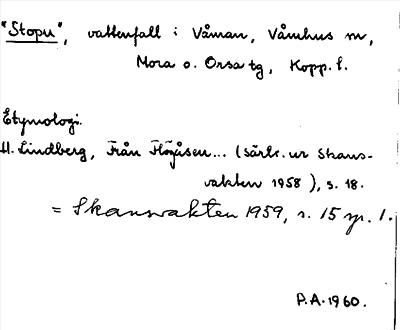 "Stopu", vattenfall i Våman, Våmhus sn,
Mora o. Orsa tg, Kopp. l.
Etymologi.
H. Lindberg, Från Flöjåsen... (särtr. ur Skans-
vakten 1958), s. 18.
= Skansvakten 1959, s. 15 sp. 1.
P.A. 1960.